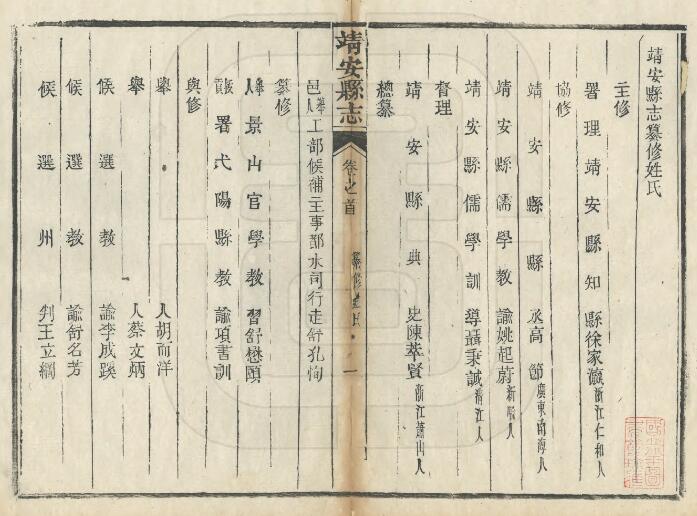 靖安縣志纂修姓氏
主修
署理靖安縣知縣徐家瀛浙江仁和人
協修
靖安縣縣丞高節廣東南海人
靖安縣儒學教諭姚起蔚新喻人
靖安縣儒學訓導聶秉誠清江人
督理
靖安縣典史陳華賢浙江蕭山人
總纂
邑舉人工部候補主事都水司行走舒孔恂
靖安縣志
卷之首
纂修姓氏
一
纂修
舉人景山官學教習舒懋頤
拔貢署弋陽縣教諭項書訓
與修
舉人胡而洋
舉人蔡文炳
候選教諭李成蹊
候選教諭舒名芳
候選州判王立綱